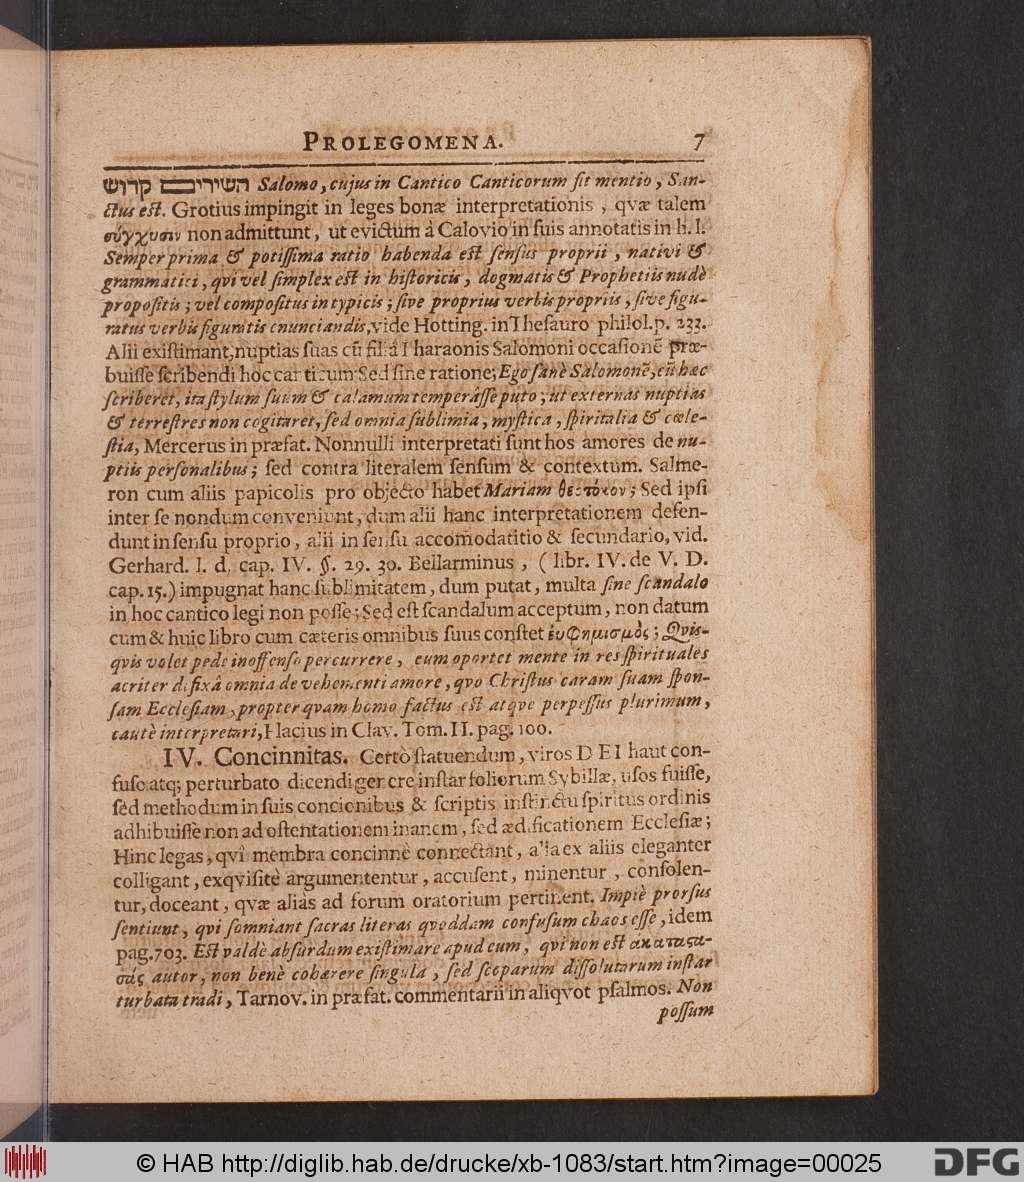 PROLEGOMENA. 7
השירים קדוש Salomo, cujus in Cantico Canticorum fit mentio, San-
ctus est. Grotius impingit in leges bonæ interpretationis, qvæ talem
σύγχυσιν non admittunt, ut evictum â Calovio in suis annotatis in h. l.
Semper prima & potissima ratio habenda est sensus proprii, nativi &
grammatici, qvi vel simplex est in historicis, dogmatis & Prophetiis nudè
propositis; vel compositus in typicis; sive proprius verbis propriis, sive figu-
ratus verbis figuratis enunciandis, vide Hotting. in Thesauro philol. p. 233.
Alii existimant, nuptias suas cũ filiâ Pharaonis Salomoni occasionẽ præ-
buisse scribendi hoc canticum: Sed sine ratione; Ego sanè Salomonẽ, cũ hæc
scriberet, ita stylum suum & calamum temperâsse puto, ut externas nuptias
& terrestres non cogitaret, sed omnia sublimia, mystica, spiritalia & cœle-
stia, Mercerus in præfat. Nonnulli interpretati sunt hos amores de nu-
ptiis personalibus; sed contra literalem sensum & contextum. Salme-
ron cum aliis papicolis pro objecto habet Mariam θεοτόκον; Sed ipsi
inter se nondum conveniunt, dum alii hanc interpretationem defen-
dunt in sensu proprio, alii in sensu accomodatitio & secundario, vid.
Gerhard. l. d. cap. IV. §. 29. 30. Bellarminus, (libr. IV. de V. D.
cap. 15.) impugnat hanc sublimitatem, dum putat, multa sine scandalo
in hoc cantico legi non posse; Sed est scandalum acceptum, non datum
cum & huic libro cum cæteris omnibus suus constet ἐυφημισμὸς; Qvis-
qvis volet pede inoffenso percurrere, eum oportet mente in res spirituales
acriter difixâ omnia de vehementi amore, qvo Christus caram suam spon-
sam Ecclesiam, propter qvam homo factus est atqve perpessus plurimum,
cautè interpretari, Flacius in Clav. Tom. II. pag. 100.
IV. Concinnitas. Certò statuendum, viros DEI haut con-
fuso atq; perturbato dicendi genere instar foliorum Sybillæ, usos fuisse,
sed methodum in suis concionibus & scriptis instinctu spiritus ordinis
adhibuisse non ad ostentationem inanem, sed ædificationem Ecclesiæ;
Hinc legas, qvî membra concinnè connectant, alia ex aliis eleganter
colligant, exqvisitè argumententur, accusent, minentur, consolen-
tur, doceant, qvæ aliàs ad forum oratorium pertinent. Impiè prorsus
sentiunt, qvi somniant sacras literas qvoddam confusum chaos esse, idem
pag. 703. Est valdè absurdum existimare apud eum, qvi non est ἀκατατα-
σίας autor, non benè cohærere singula, sed scoparum dissolutarum instar
turbata tradi, Tarnov. in præfat. commentarii in aliqvot psalmos. Non
possum
© HAB http://diglib.hab.de/drucke/xb-1083/start.htm?image=00025
DFG